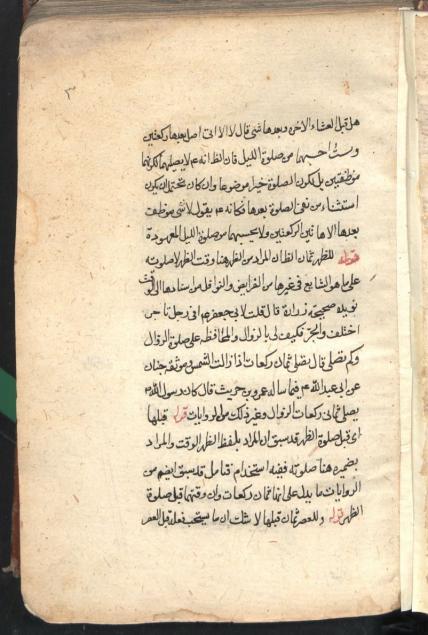 ٣
هل قبل العشاء الاخرة وبعدها شئ قال لا الا اني اصلي بعدها ركعتين
ولست احسبهما من صلوة الليل فان الظ انه ع لا يصليهما لكونهما
موظفتين بل لكون الصلوة خير موضوع وان كان يحتمل ان يكون
استثناء من نفي الصلوة بعدها فكانه ع يقول لا شئ موظف
بعدها الا هاتين الركعتين ولا يحسبهما من صلوة الليل المعهودة
قوله للظهر ثمان الظ ان المراد من الظهر هنا وقت الظهر لا صلوته
على ما هو الشايع في غيرها من الفرايض والنوافل من اسنادها الى الوقت
تؤيده صحيحة زرارة قال قلت لابي جعفر ع اني رجل تاجر
اختلف واتجر فكيف لي بالزوال والمحافظة على صلوة الزوال
وكم نصلي قال تصلي ثمان ركعات اذا زالت الشمس وموثقة حنان
عن ابي عبد الله ع فيما ساله عمرو بن حريث قال كان رسول الله ص
يصلي ثماني ركعات الزوال وغير ذلك من الروايات قوله قبلها
اي قبل صلوة الظهر قد سبق ان المراد بلفظ الظهر الوقت والمراد
بضميره هنا صلوته ففيه استخدام فتامل قد سبق ايضا من
الروايات ما يدل على انها ثمان ركعات وان وقتها قبل صلوة
الظهر قوله وللعصر ثمان قبلها لا شك ان ما يستحب فعله قبل العصر